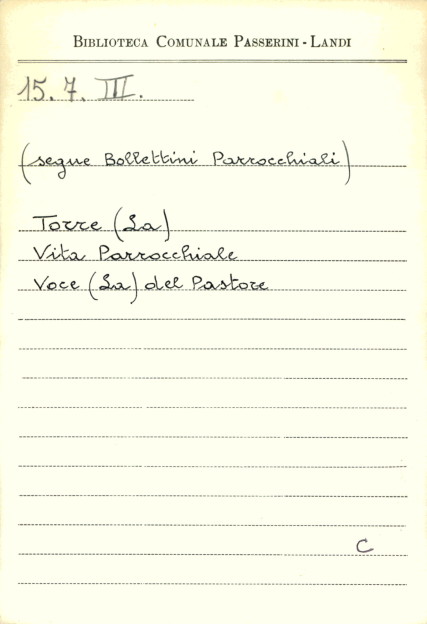 BIBLIOTECA COMUNALE PASSERINI - LANDI
15. 7. III.
(segue Bollettini Parrocchiali)
Torre (La)
Vita Parrocchiale
Voce (La) del Pastore
C